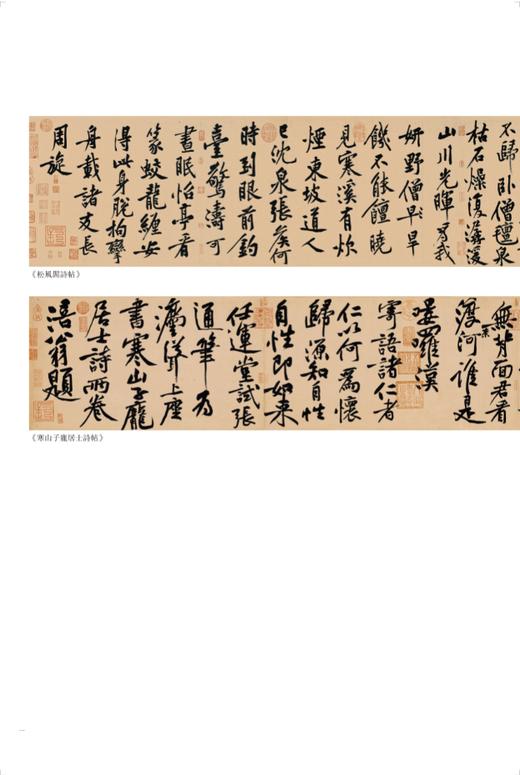 不歸卧僧氊泉
枯石燥復潺湲
山川光暉為我
妍野僧早旱
饑不能饘曉
見寒溪有炊
煙東坡道人
已沈泉張侯何
時到眼前釣
臺驚濤可
晝眠怡亭看
篆蛟龍纏安
得此身脫拘攣
舟載諸友長
周旋
《松風閣詩帖》
無背面君看
渡奈河誰是
嘍羅漢
寄語諸仁者
仁以何為懷
歸源知自性
自性即如來
任運堂試張
通筆為
灋聳上座
書寒山子龐
居士詩兩卷
涪翁題
《寒山子龐居士詩帖》